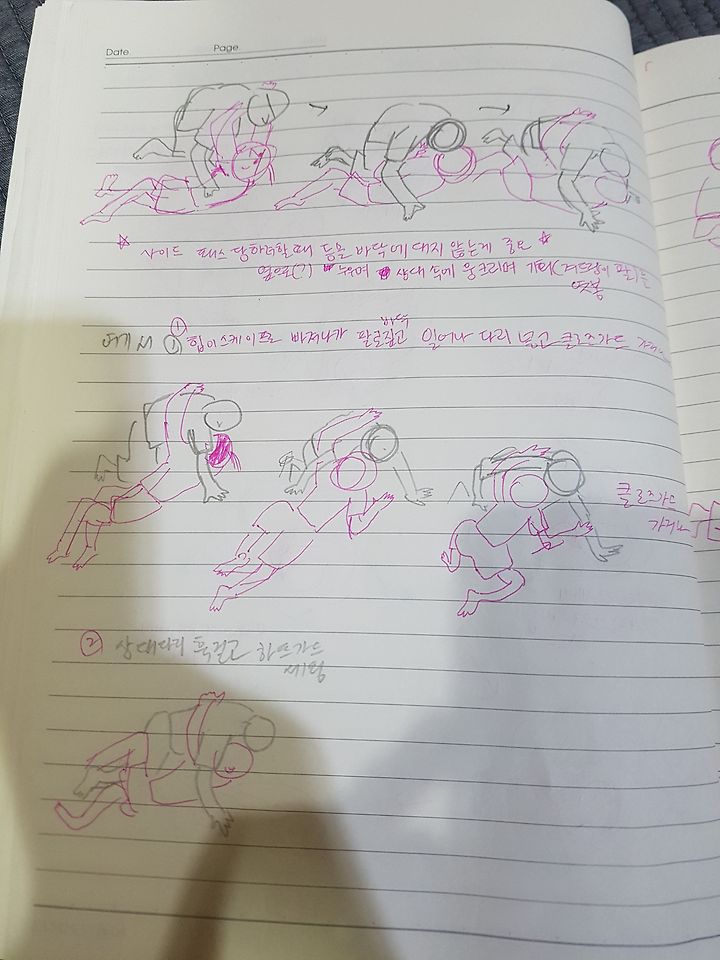 Date. Page.
☆ 사이드 패스 당하려할때 등을 바닥에 대지 않는게 중요 ☆
옆으로(?) 누우며 상대 속에 웅크리며 기회(겨드랑이 파기)를
엿봄
여기서 ① 힙이스케이프로 빠져나가 팔로 바닥 짚고 일어나 다리 넣고 클로즈가드 가거나
클로즈가드
가거나
② 상대다리 훅걸고 하프가드
세팅